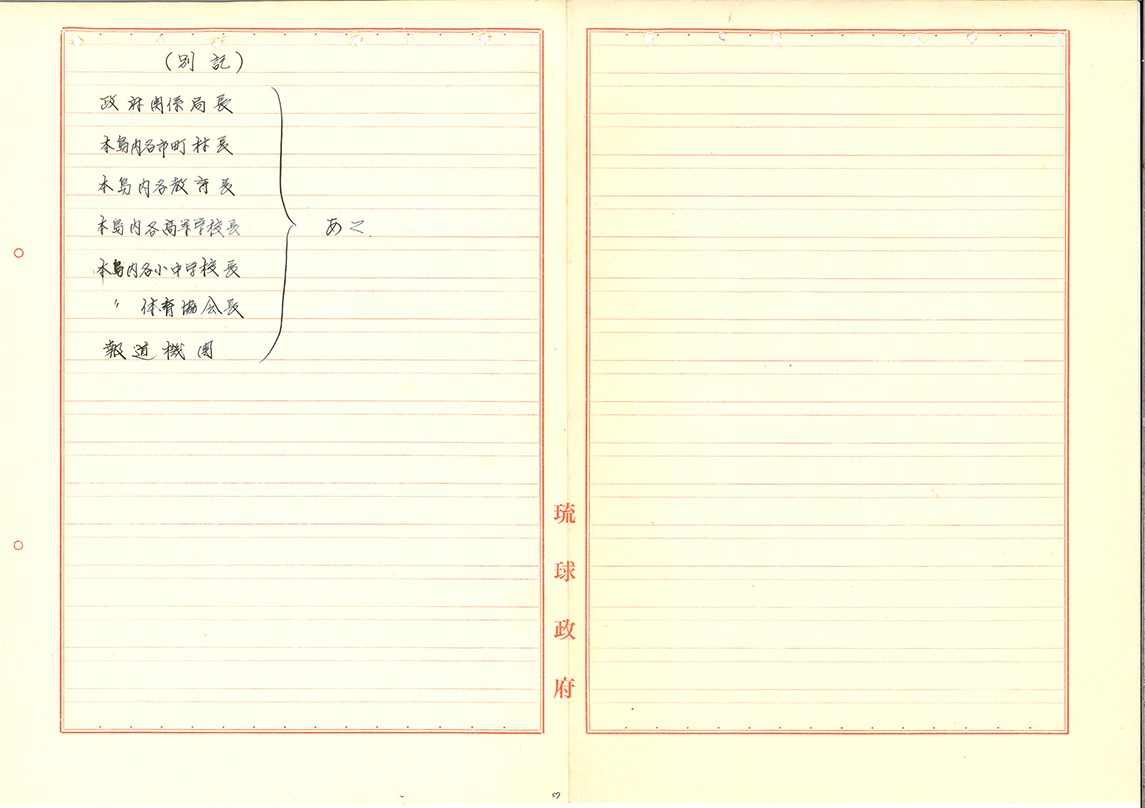 (別記)
政府関係局長
本島内各市町村長
本島内各教育長
本島内各高等学校長
本島内各小中学校長
〃 体育協会長
報道機関
あて.
琉球政府